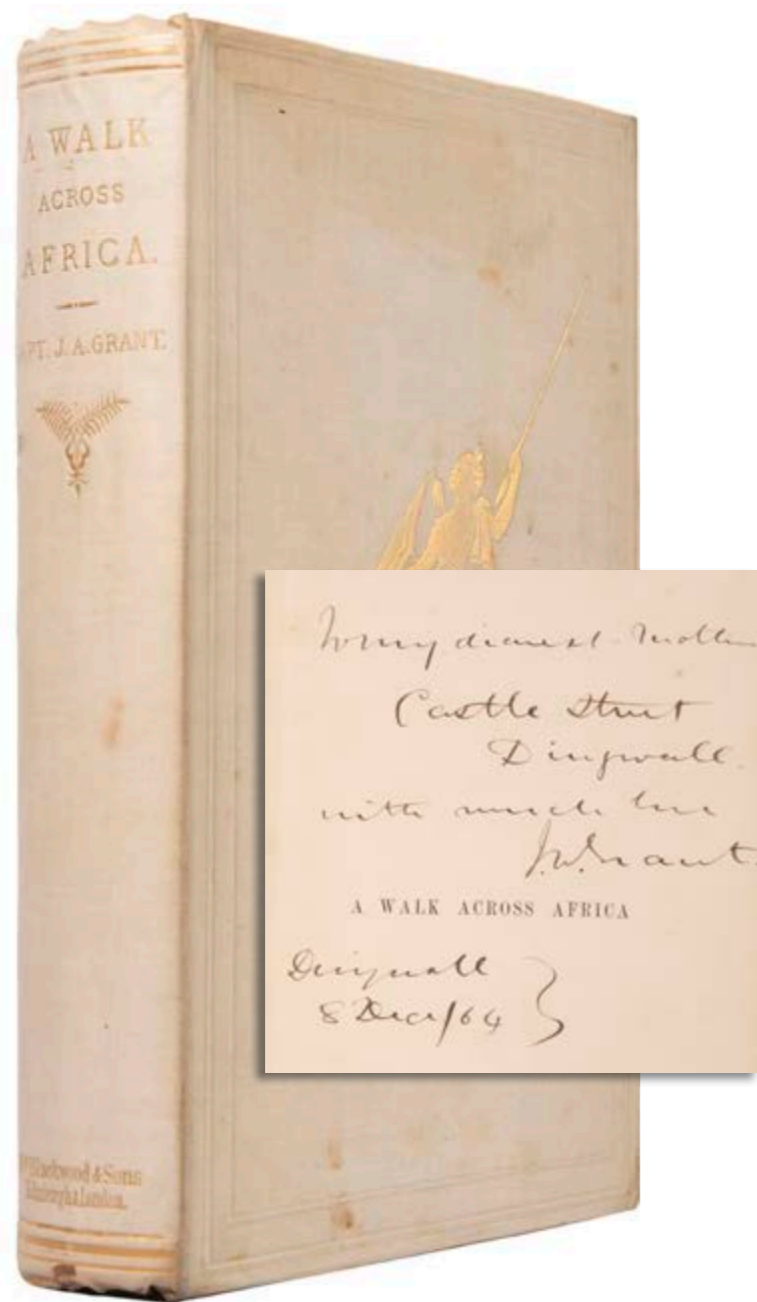 A WALK
ACROSS
AFRICA.
PT. J. A. GRANT.
Blackwood & Sons
London.
To my dearest Mother
Castle Street
Dingwall.
with much love
J.W. Grant.
A WALK ACROSS AFRICA
Dingwall
8 Decr/64